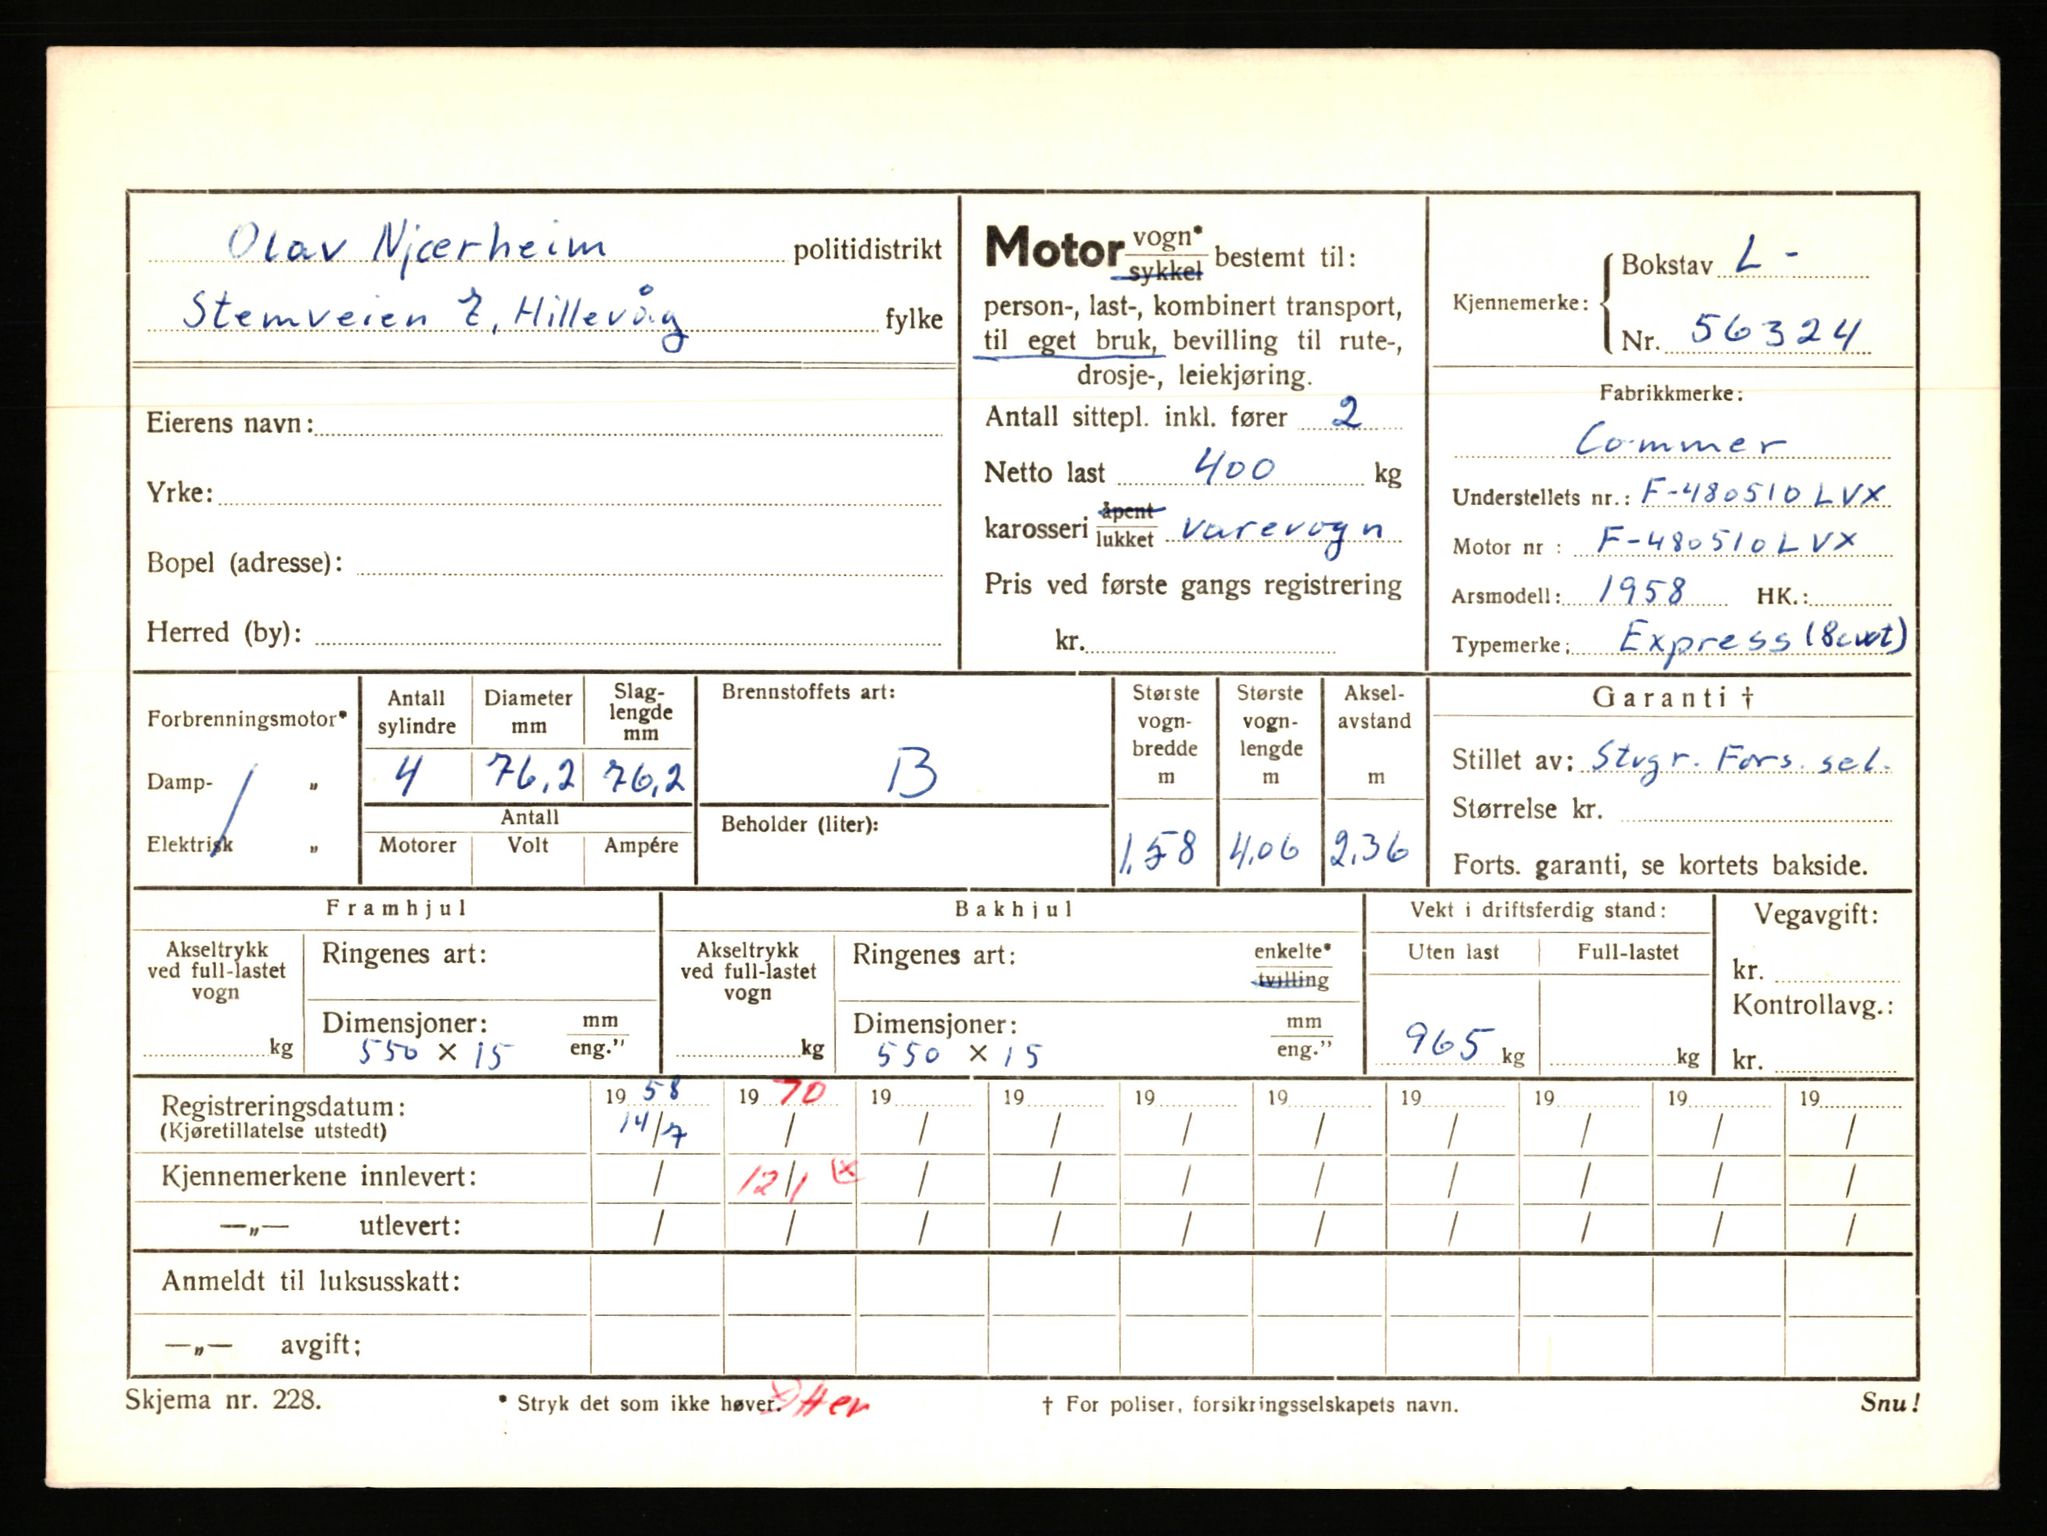 Olav Njærheim politidistrikt
Stemveien 7, Hillevåg fylke
Eierens navn:
Yrke:
Bopel (adresse):
Herred (by):
Motor vogn* sykkel bestemt til:
person-, last-, kombinert transport,
til eget bruk, bevilling til rute-,
drosje-, leiekjøring.
Antall sittepl. inkl. fører 2
Netto last 400 kg
karosseri åpent lukket varevogn
Pris ved første gangs registrering
kr.
Kjennemerke: Bokstav L -
Nr. 56324
Fabrikkmerke:
Commer
Understellets nr.: F-480510LVX
Motor nr : F-480510LVX
Arsmodell: 1958 HK.:
Typemerke: Express (8cwt)
Forbrenningsmotor*
Damp- „
Elektrisk „
Antall sylindre
Diameter mm
Slag-lengde mm
4 76,2 76,2
Antall
Motorer Volt Ampére
Brennstoffets art:
B
Beholder (liter):
Største vogn-bredde m
Største vogn-lengde m
Aksel-avstand m
1,58 4,06 2.36
Garanti †
Stillet av: Stvgr. Fors. sel.
Størrelse kr.
Forts. garanti, se kortets bakside.
Framhjul
Akseltrykk ved full-lastet vogn
kg
Ringenes art:
Dimensjoner: mm eng."
550 × 15
Bakhjul
Akseltrykk ved full-lastet vogn
kg
Ringenes art: enkelte* tvilling
Dimensjoner: mm eng."
550 × 15
Vekt i driftsferdig stand:
Uten last Full-lastet
965 kg kg
Vegavgift:
kr.
Kontrollavg.:
kr.
19 58 19 70 19 19 19 19 19 19 19 19
Registreringsdatum: 14/7 / / / / / / / / /
(Kjøretillatelse utstedt)
Kjennemerkene innlevert: / 12/1 x / / / / / / / /
—„— utlevert: / / / / / / / / / /
Anmeldt til luksusskatt:
—„— avgift:
Skjema nr. 228.
* Stryk det som ikke høver.
† For poliser, forsikringsselskapets navn.
Snu!